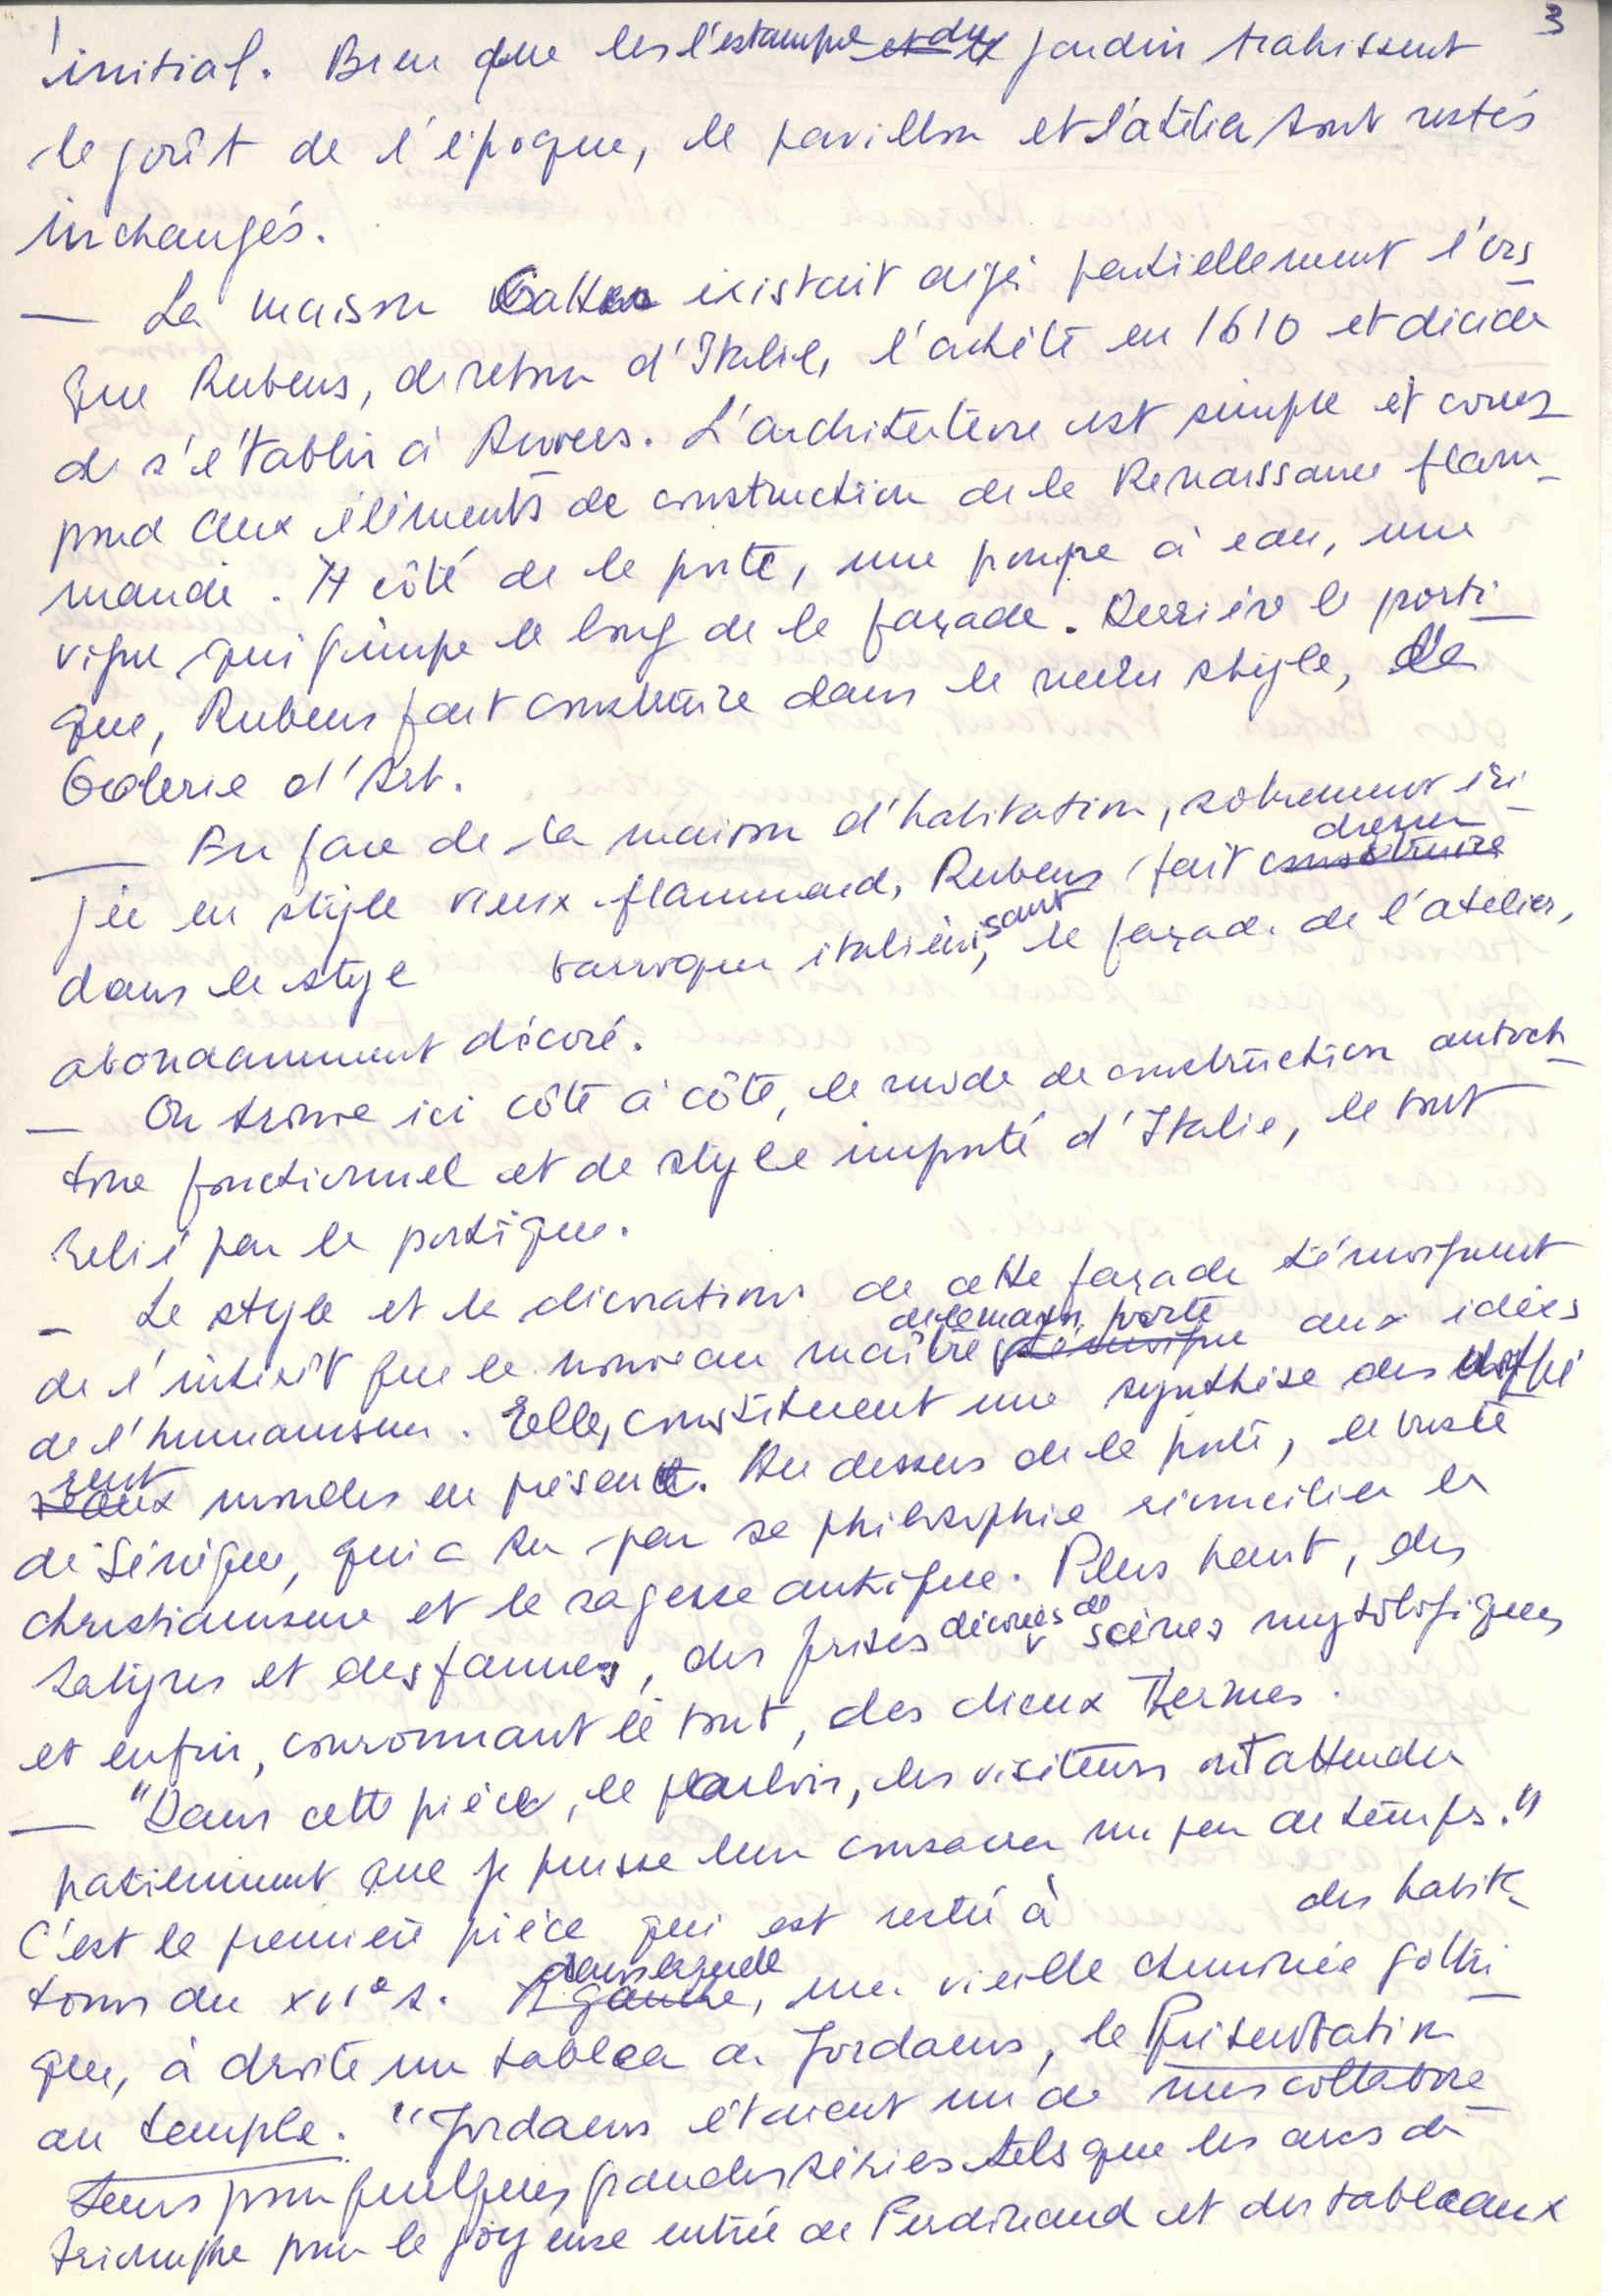 3
initial. Bien que les l'estampe et du jardin trahissent
le goût de l'époque, le pavillon et l'atelier sont restés
inchangés.
— La maison existait déjà partiellement l'ors
que Rubens, de retour d'Italie, l'achète en 1610 et décide
de s'établir à Anvers. L'architecture est simple et corres
pond aux éléments de construction de la Renaissance flam-
mande. A côté de la porte, une pompe à eau, une
vigne qui grimpe le long de la façade. Derrière le porti-
que, Rubens fait construire dans le même style, la
Galerie d'Art.
— En face de la maison d'habitation, sobrement éri-
gée en style vieux flammand, Rubens fait construire dresser
dans le style barroque italienisant, la façade de l'atelier,
abondamment décoré.
— On trouve ici côte à côte, le mode de construction autoch-
tone fonctionnel et de style importé d'Italie, le tout
relié par le portique.
— Le style et la décorations de cette façade témoignent
de l'intérêt que le nouveau maître de la maison porte témoigne aux idées
de l'humanisme. Elle, constituent une synthèse des diffé
rent mondes en présence. Au dessus de la porte, le buste
de Sénèque, qui a su par sa philosophie réconcilier le
christianisme et la sagesse antique. Plus haut, des
satyres et des faunes, des frises décorées de scènes mytologiques
et enfin, couronnant le tout, des dieux Hermes.
— "Dans cette pièce, le parloir, les visiteurs ont attendu
patiemment que je puisse leur consacrer un peu de temps."
C'est la première pièce qui est resté à des habita
tions du XVIe s. A gauche dans laquelle, une vieille cheminée gothi-
que, à droite un tableau de Jordaens, la Présentation
au temple. "Jordaens étaient un de mes collabora-
teurs pour quelques grandes séries tels que les arcs de
triomphe pour la joyeuse entrée de Ferdinand et des tableaux